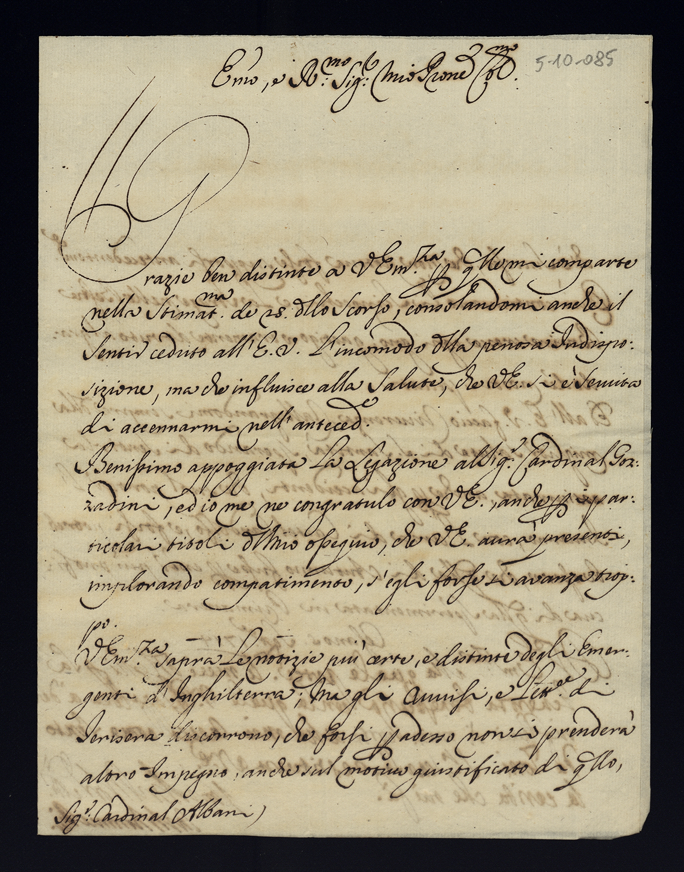 Emo, e Rmo Sigr Mio Prone Colmo
5-10-085
Grazie ben distinte a VEmza p qllo mi comparte
nella Stimatma de 25. dllo Scorso, consolandomi anche il
sentir ceduto all'E.V. L'incomodo dlla penosa Indispo-
sizione, ma che influisce alla Salute, che VE. si è servita
di accennarmi nell'anteced.e
Benissimo appoggiata La Legazione al Sigr Cardinal Goz-
zadini, ed io me ne congratulo con VE., anche p i par-
ticolari titoli dl mio ossequio, che VE. aurà presenti,
implorando compatimento, s'egli forse si avanza trop-
po.
VEmza saprà Le notizie più certe, e distinte degli Emer-
genti d'Inghilterra; Ma gli Avvisi, e Lettre di
Ierisera discorrono, che forsi p adesso non si prenderà
altro Impegno, anche sul motivo giustificato di qllo,
Sigr Cardinal Albani)